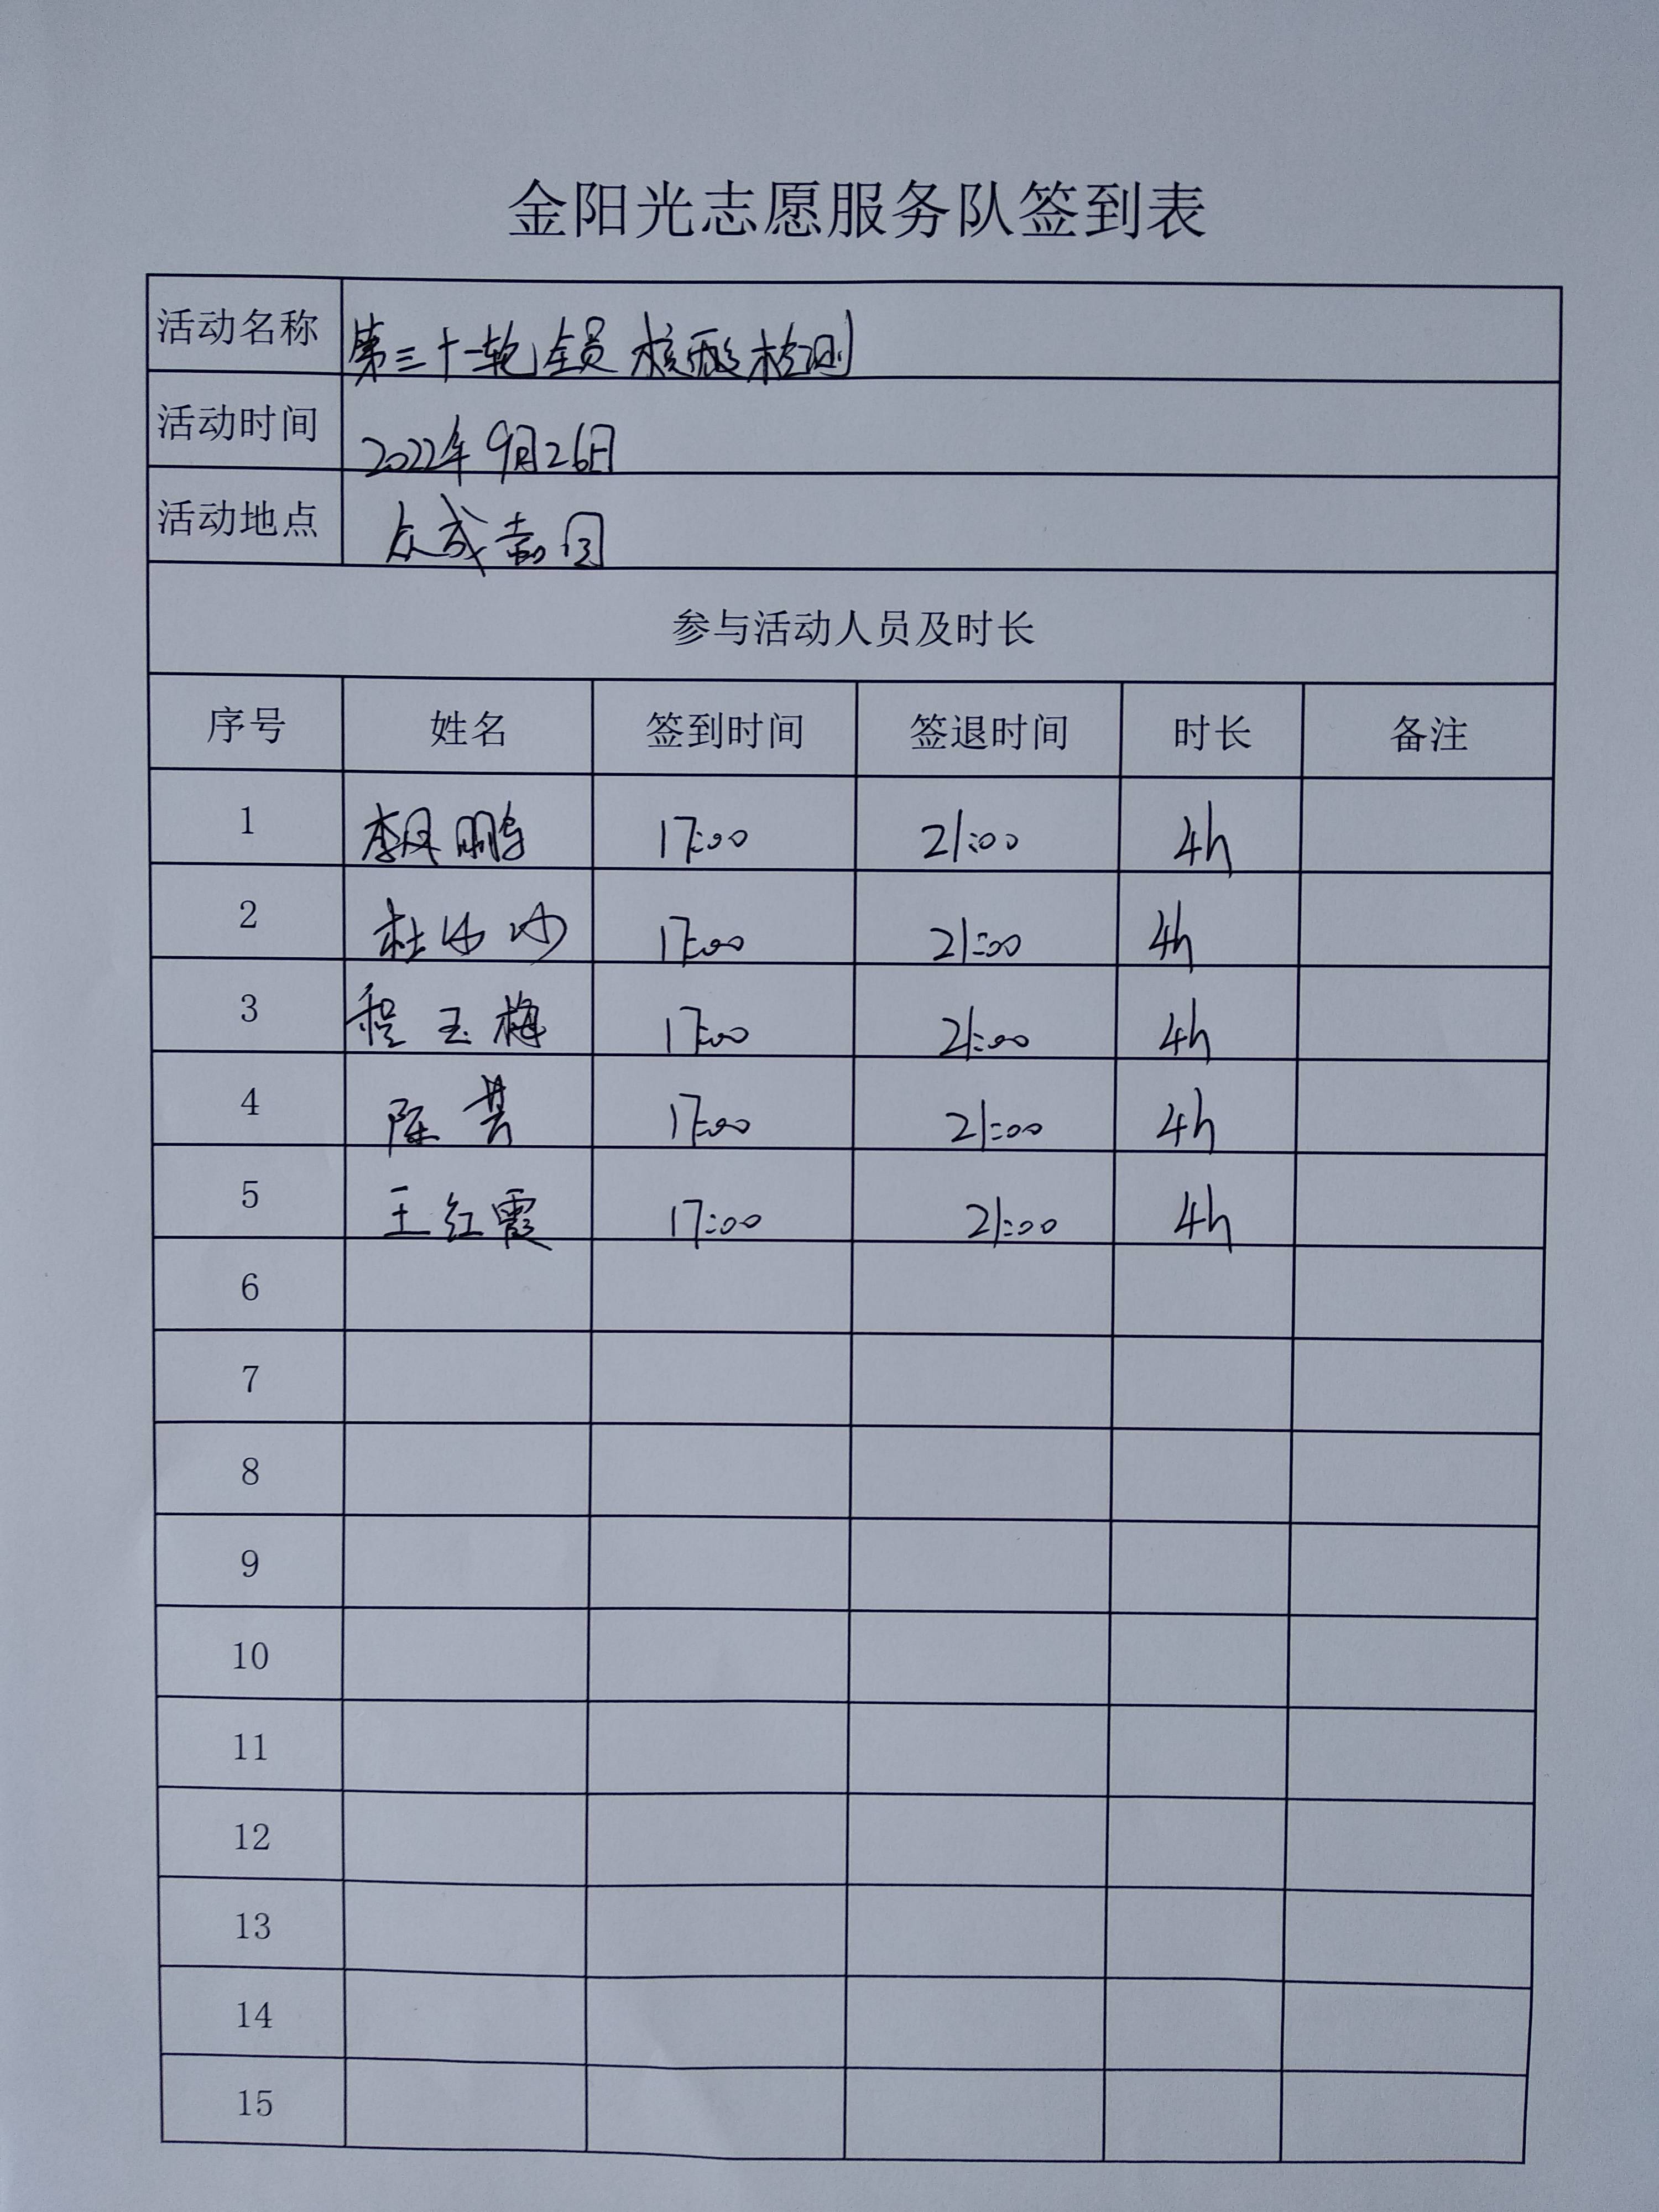 金阳光志愿服务队签到表
活动名称 第三十一轮全员核酸检测
活动时间 2022年9月26日
活动地点 众成嘉园
参与活动人员及时长
序号 姓名 签到时间 签退时间 时长 备注
1 李凤鹏 17:00 21:00 4h
2 杜沙沙 17:00 21:00 4h
3 程玉梅 17:00 21:00 4h
4 陈 17:00 21:00 4h
5 王红霞 17:00 21:00 4h
6
7
8
9
10
11
12
13
14
15